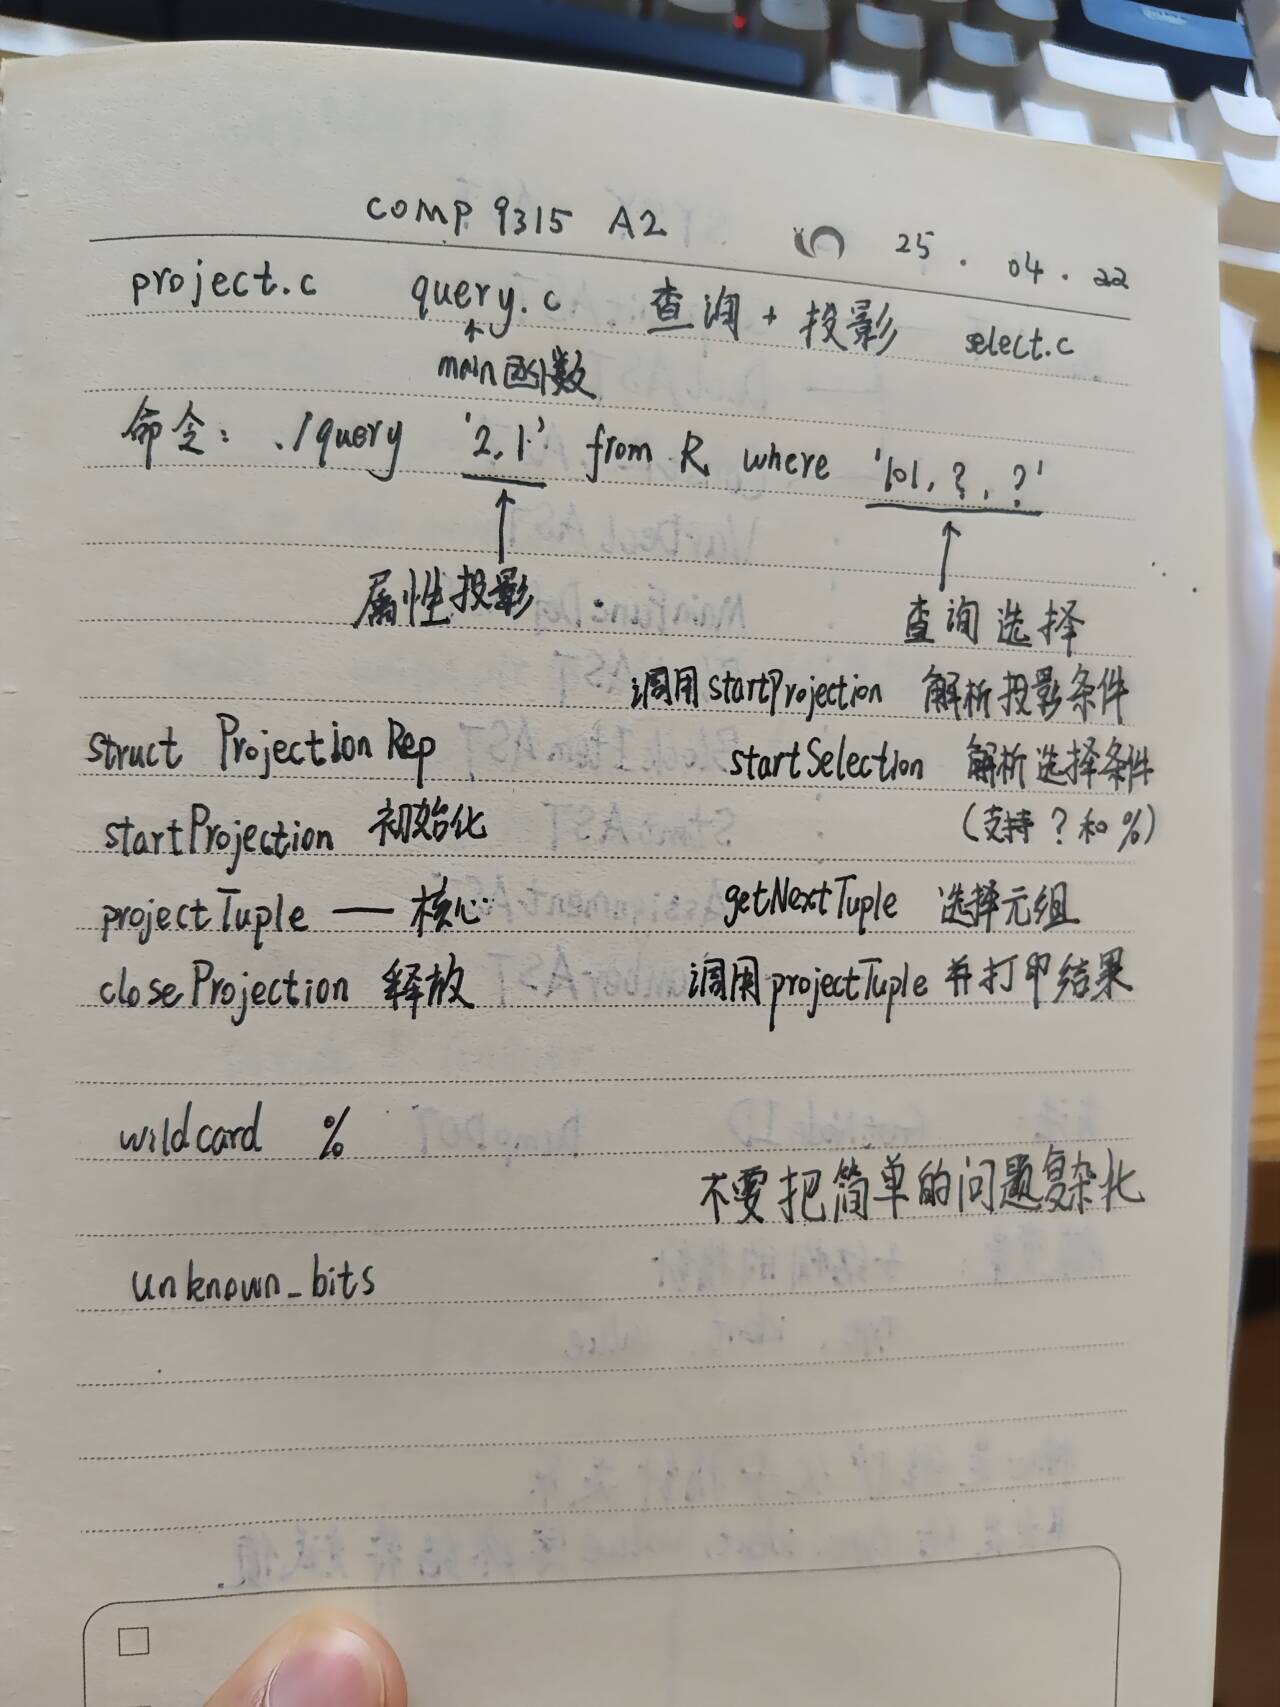 comp 9315 A2 25 . 04 . 22
project.c query.c 查询 + 投影 select.c
main函数
命令: ./query '2,1' from R where '101, ?, ?'
属性投影 查询选择
调用 startProjection 解析投影条件
struct ProjectionRep startSelection 解析选择条件
startProjection 初始化 (支持 ? 和 %)
projectTuple —— 核心 getNextTuple 选择元组
closeProjection 释放 调用 projectTuple 并打印结果
wildcard %
不要把简单的问题复杂化
unknown_bits